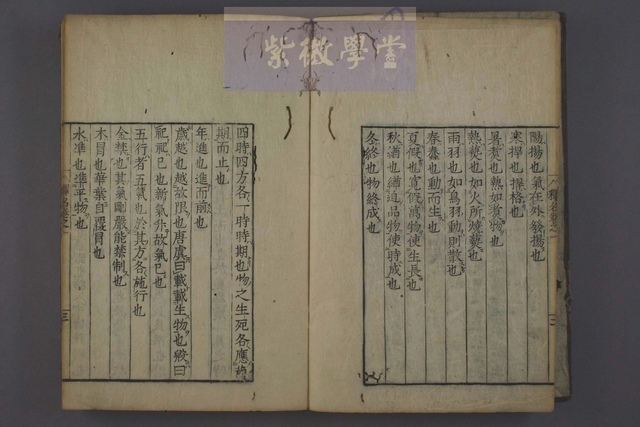 紫微學堂
陽揚也氣在外發揚也
寒捍也捍格也
暑煑也熱如煑物也
熱爇也如火所燒爇也
雨羽也如鳥羽動則散也
春蠢也動而生也
夏假也寬假萬物使生長也
秋緧也緧迫品物使時成也
冬終也物終成也
四時四方各一時時期也物之生死各應節
期而止也
年進也進而前也
歲越也越故限也唐虞曰載載生物也殷曰
祀祀巳也新氣升故氣巳也
五行者五氣也於其方各施行也
金禁也其氣剛嚴能禁制也
木冒也華葉自覆冒也
水準也準平物也